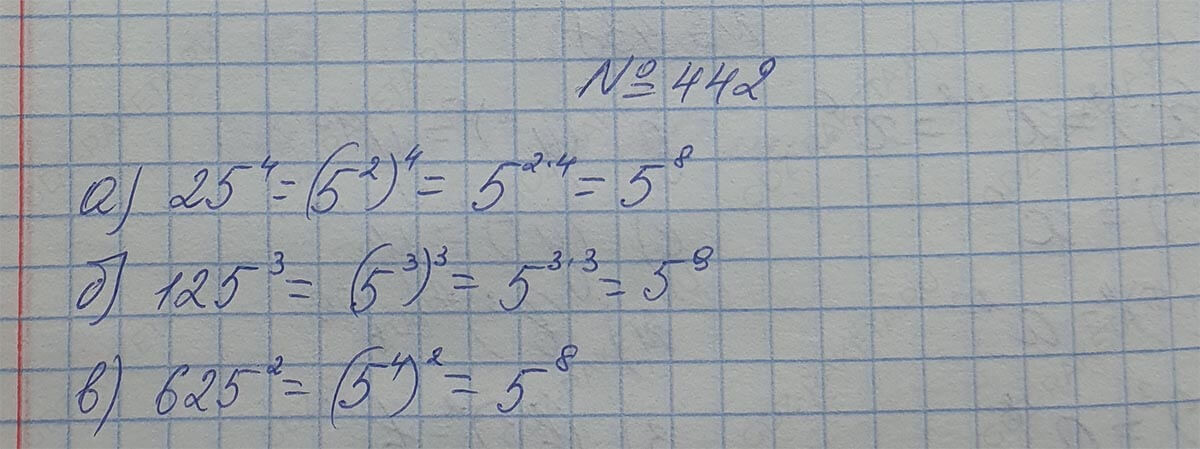 № 442
а) 25⁴ = (5²)⁴ = 5²·⁴ = 5⁸
б) 125³ = (5³)³ = 5³·³ = 5⁹
в) 625² = (5⁴)² = 5⁸